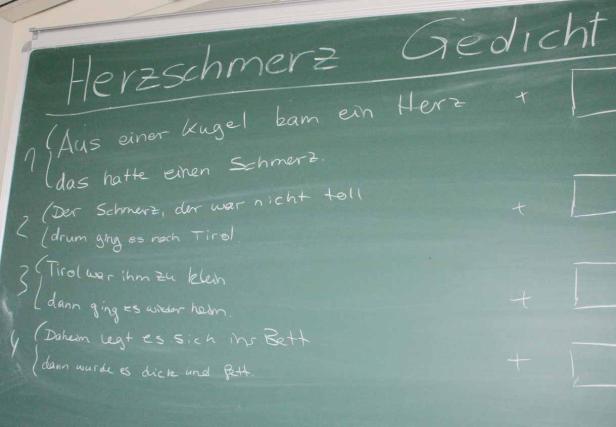 Herzschmerz Gedicht
1 Aus einer Kugel kam ein Herz +
das hatte einen Schmerz.
2 Der Schmerz, der war nicht toll +
drum ging es nach Tirol
3 Tirol war ihm zu klein
dann ging es wieder heim. +
4 Daheim legt es sich ins Bett +
dann wurde es dick und fett.